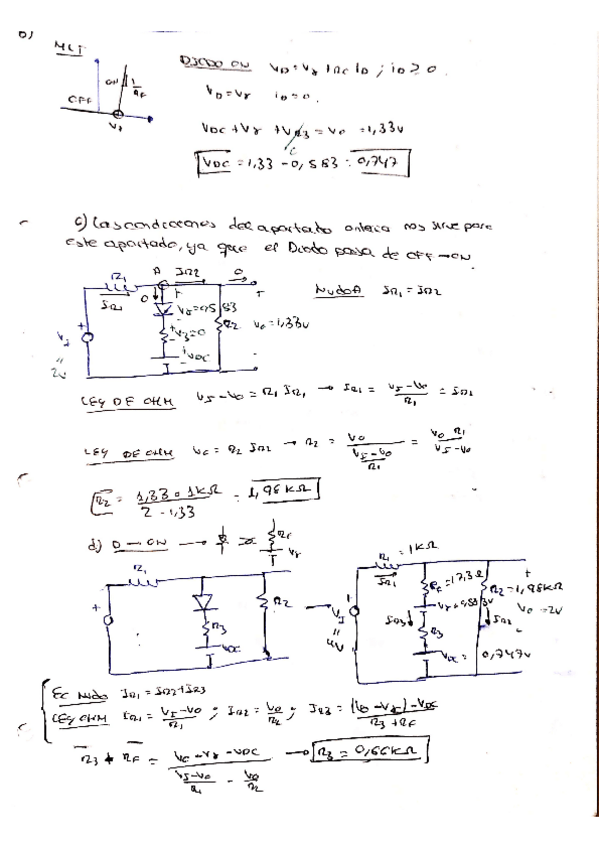 b)
MLI
DIODO ON VD = Vγ + RF ID ; iD ≥ 0
ON 1/RF
OFF
Vγ
VD = Vγ iD = 0
VDC + Vγ + VR3 = Vo = 1,33v
VDC = 1,33 - 0,583 = 0,747
c) Las condiciones del apartado anterior nos sirve para
este apartado, ya que el Diodo pasa de OFF → ON
R1 A IR2 0
IR1 0
Nudo A IR1 = IR2
Vγ = 0,583
V3 = 0
R2 Vo = 1,33v
VI
2v
VDC
LEY DE OHM VI - Vo = R1 IR1 → IR1 = VI - Vo / R1 = IR2
LEY DE OHM Vo = R2 IR2 → R2 = Vo / (VI - Vo / R1) = Vo R1 / VI - Vo
R2 = 1,33 · 1kΩ / 2 - 1,33 = 1,98 KΩ
d) D → ON → RF Vγ
R1
R2
R3
VDC
R1 = 1KΩ
IR1
RF = 17,3Ω
R2 = 1,98KΩ
Vγ = 0,583v
Vo = 2v
VI
4V
IR3 R3 IR2
VDC = 0,747v
Ec Nudo IR1 = IR2 + IR3
LEY OHM IR1 = VI - Vo / R1 ; IR2 = Vo / R2 ; IR3 = (Vo - Vγ) - VDC / R3 + RF
R3 + RF = Vo - Vγ - VDC / (VI - Vo / R1 - Vo / R2) → R3 = 0,66KΩ